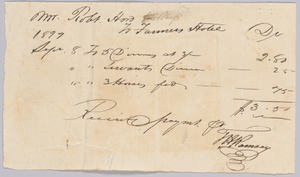 Mr. Robt
To Farmers Hotel Dr
Sept. 8 To 5 Dinners at 2.50
" " Servants Dinner 25
" " 3 Horses fed 75
$3.50
Received paymt
Ramsey